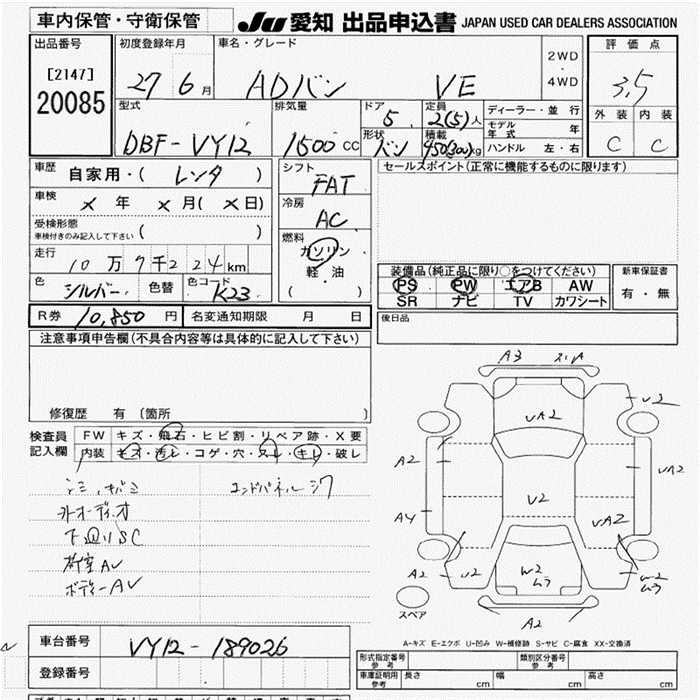 車内保管・守衛保管
JU 愛知 出品申込書 JAPAN USED CAR DEALERS ASSOCIATION
出品番号
[2147]
20085
初度登録年月
27 6月
車名・グレード
ADバン VE
2WD
・
4WD
評価点
3.5
外装 内装
C C
型式
DBF-VY12
排気量
1500 CC
ドア
5
定員
2(5)人
形状
バン
積載
450(300)kg
ディーラー・並行
モデル年式 年
ハンドル 左・右
車歴
自家用・( レンタ )
車検
× 年 × 月( × 日)
受検形態
車検付きのみ記入して下さい ( )
走行
10万 9千2 24 km
色
シルバー
色替
色コード
K23
シフト
FAT
冷房
AC
燃料
ガソリン
軽・油
( )
セールスポイント(正常に機能するものに限ります)
装備品(純正品に限り○をつけてください)
PS PW エアB AW
SR ナビ TV カワシート
新車保証書
有・無
後日品
R券 10,850 円
名変通知期限 月 日
注意事項申告欄(不具合内容等は具体的に記入して下さい)
修復歴 有(箇所 )
検査員記入欄
FW キズ・飛石・ヒビ割・リペア跡・X要
内装 キズ・汚レ・コゲ・穴・スレ・キレ・破レ
エンドパネルシワ
外オーディオ
下廻りSC
荷室AU
ボディーAU
A3 スリA
U3
UA2
A2
UA2
U2
A4
UA2
A2
U2
W2
ムラ
W2
ムラ
A2
スペア
A-キズ E-エクボ U-凹み W-補修跡 S-サビ C-腐食 XX-交換済
車台番号
VY12-189026
登録番号
形式指定番号
参考
類別区分番号
参考
車庫証明用
参考
長さ cm 幅 cm 高さ cm